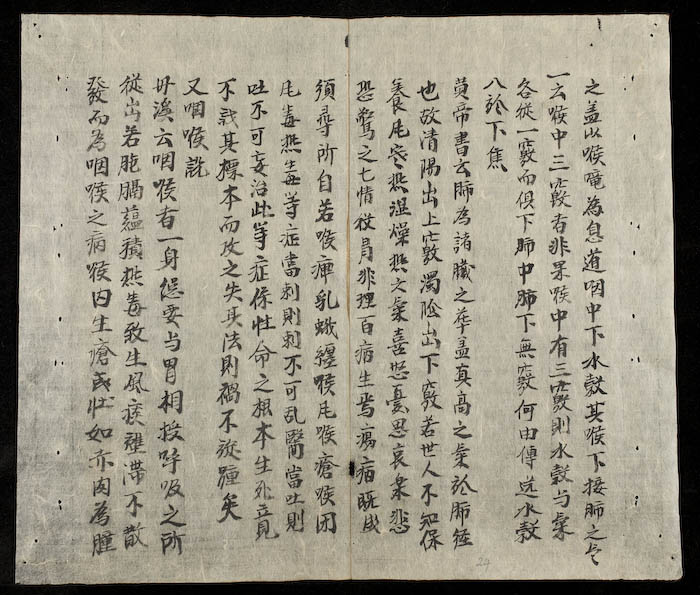 之盖以喉嚨為息道咽中下水穀其喉下接肺之气
一云喉中三竅者非果喉中有三竅則水穀与氣
各從一竅而俱下肺中肺下無竅何由傳送水穀
八於下焦
黄帝書云肺為諸臟之華盖真高之氣於肺経
也故清陽出上竅濁陰出下竅若世人不知保
養風寒燃濕燥燃文氣喜怒憂思哀氣悲
恐驚之七情役胃非理百病生焉瘍病既成
須尋所自若喉痺乳蛾纏喉風喉瘡喉闭
風毒燃毒等症當刺則刺不可乱醫當吐則
吐不可妄治此等症係性命之根本生死立見
不識其標本而攻之失其法則禍不旋踵矣
又咽喉說
丹溪云咽喉者一身怹要与胃相授呼吸之所
從出若胞膈蘊積燃毒致生風痰雍滞不散
發而為咽喉之病喉内生瘡或壮如赤肉為腫
24